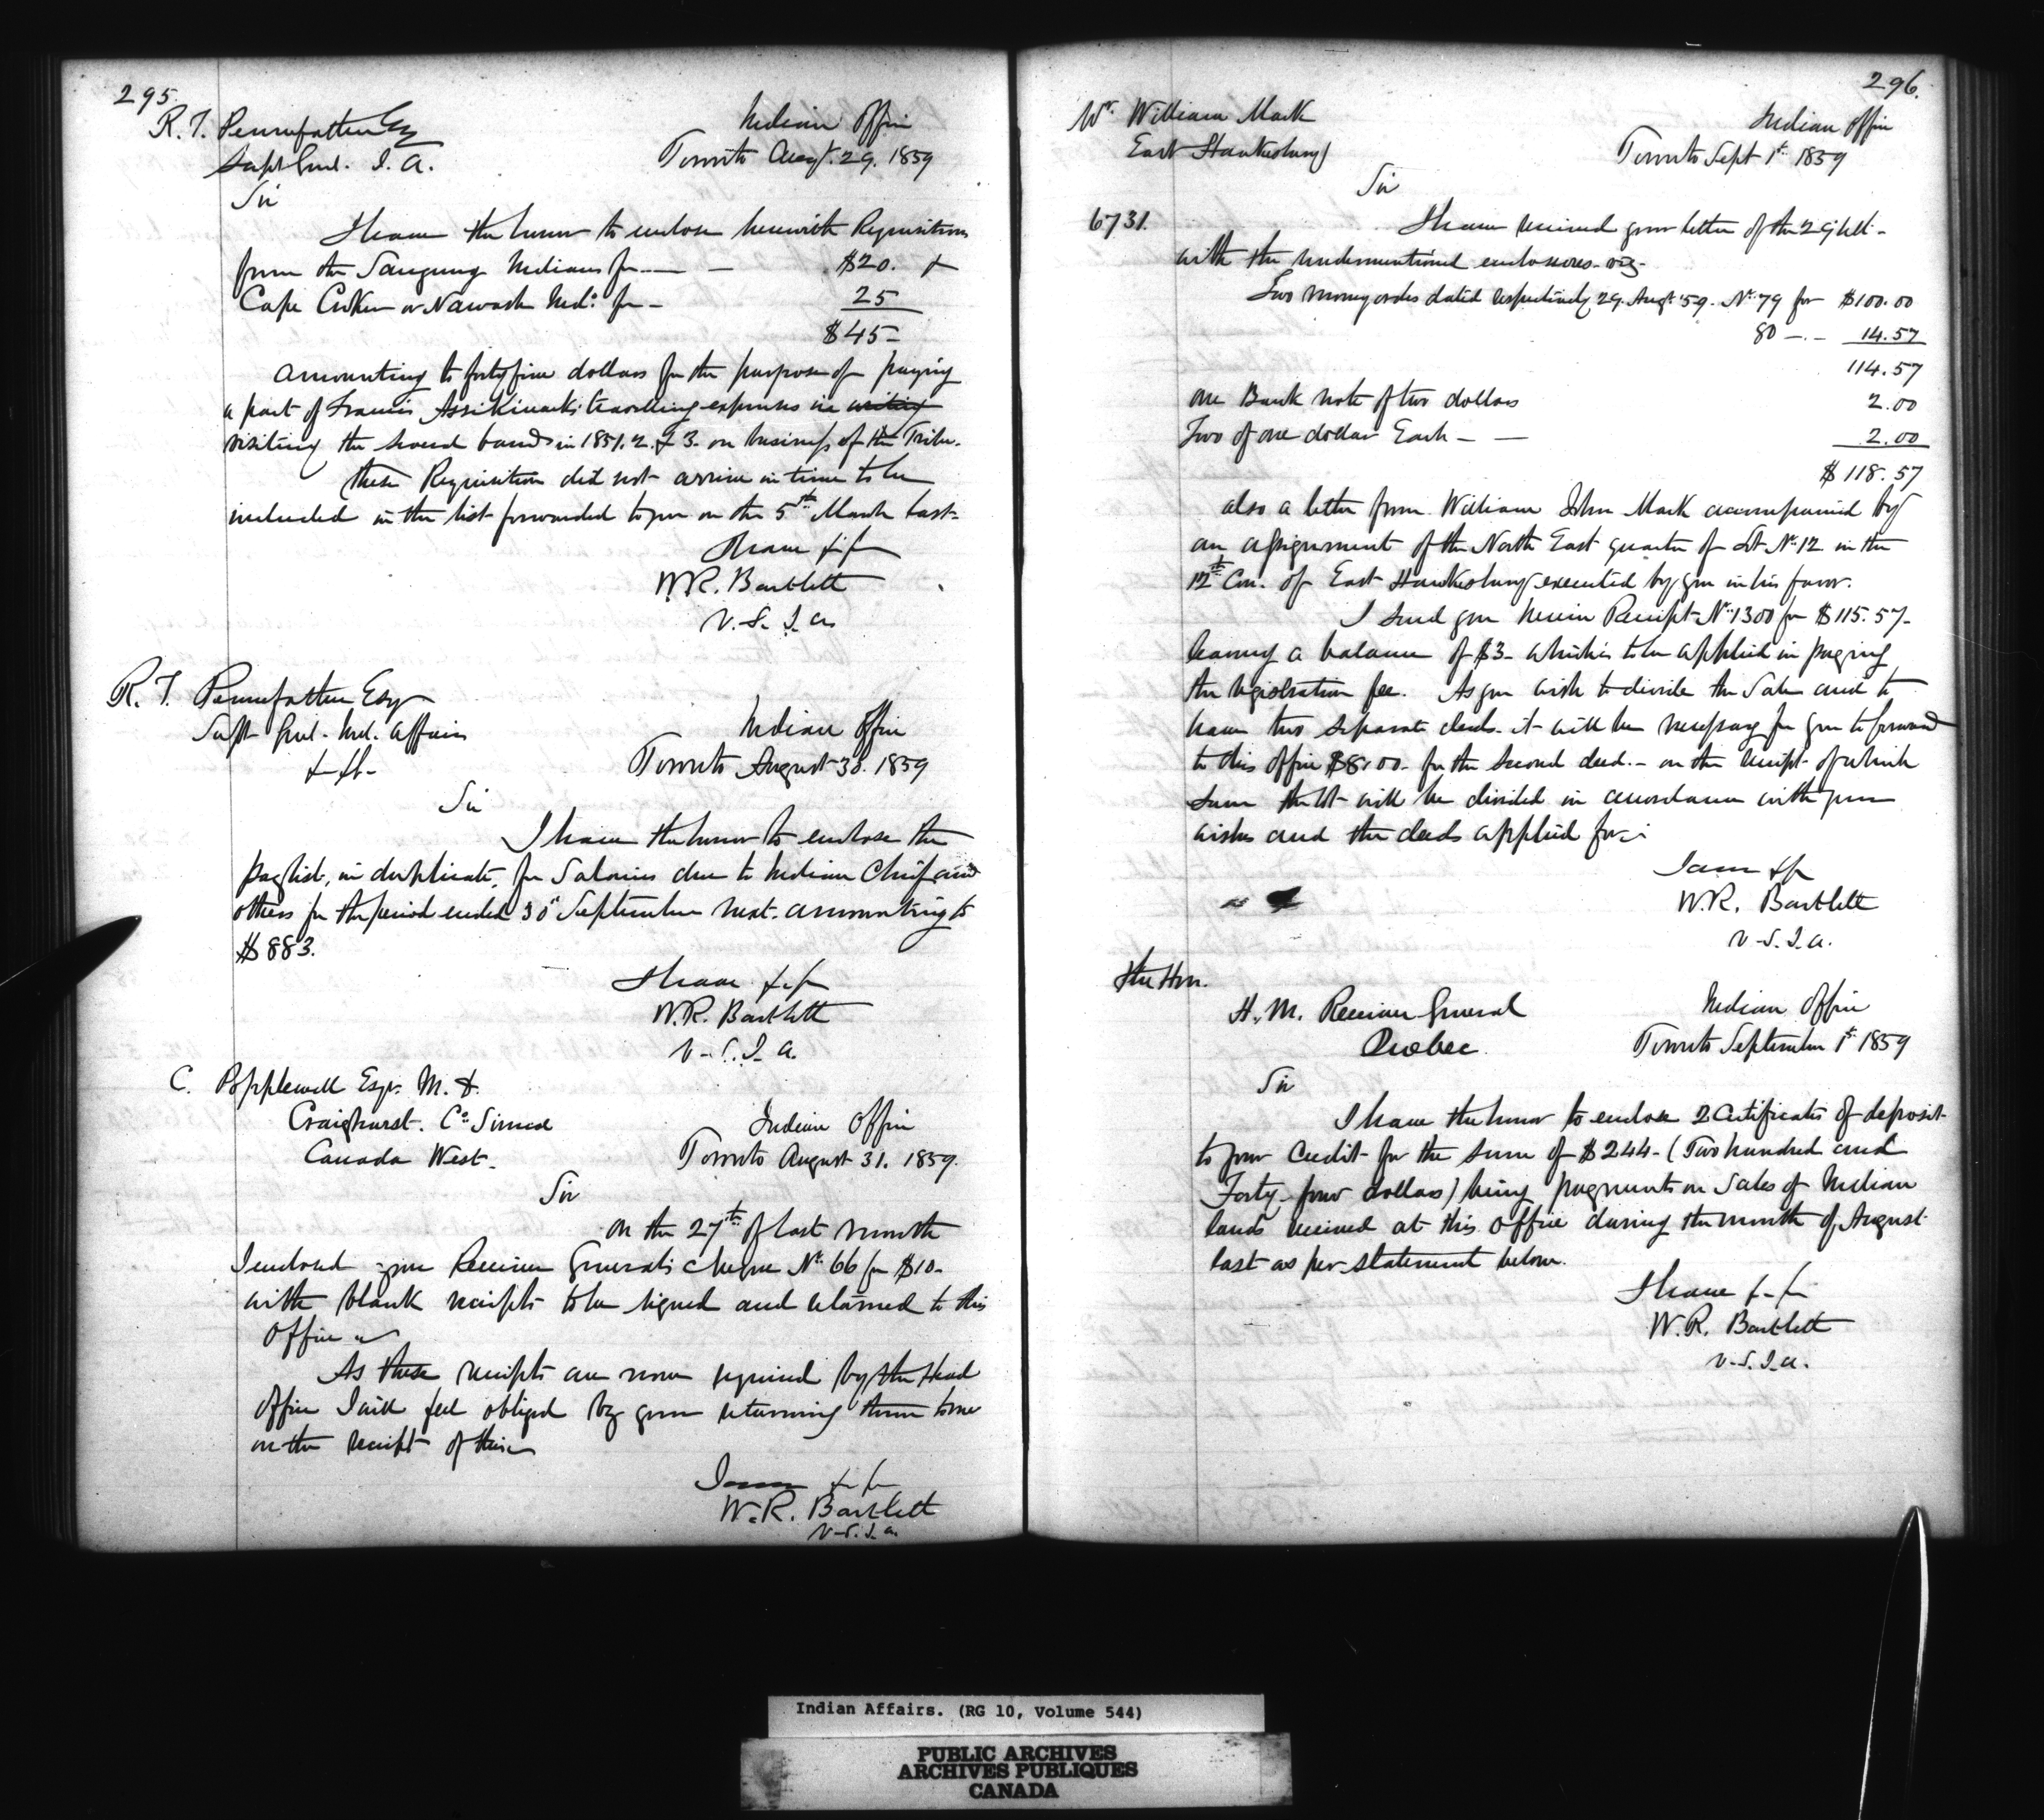 295.
R. T. Pennefather Esq
Supt Genl. I. A.
Indian Office
Toronto Augt. 29. 1859
Sir
I have the honor to enclose herewith Requisitions
from the Saugeeng Indians for — — $20.
Cape Croker or Nawash Inds. for — 25
$45 —
amounting to forty five dollars for the purpose of paying
a part of Francis Assikinack's travelling expenses in writing
visiting the several bands in 1851. 2. & 3. on business of the Tribe.
These Requisitions did not arrive in time to be
included in the list forwarded to you on the 5th March last.
I have &c &c
W.R. Bartlett
V.S.I.A.
R. T. Pennefather Esqr
Supt Genl. Ind. Affairs
&c &c
Indian Office
Toronto August 30. 1859
Sir
I have the honor to enclose the
paylist, in duplicate, for Salaries due to Indian Chiefs and
others for the period ended 30th September next. amounting to
$883.
I have &c &c
W.R. Bartlett
V.S.I.A.
C. Popplewell Esqr. M. D.
Craighurst. Co. Simcoe
Canada West.
Indian Office
Toronto August 31. 1859.
Sir
On the 27th of last month
I enclosed you Receiver General's cheque No. 66 for $10 –
with blank receipts to be signed and returned to this
Office
As these receipts are now required by the Head
Office I will feel obliged by your returning them to me
on the receipt of this
I am &c &c
W.R. Bartlett
V.S.I.A.
296.
Mr. William Mark
East Hawkesbury
Indian Office
Toronto Sept 1st 1859
Sir
6731.
I have received your letter of the 29 Ult.
with the undermentioned enclosures. viz –
Two money orders dated respectively 29. Augt '59. No. 79 for $100.00
80 — 14.57
114.57
One Bank note of two dollars 2.00
Two of one dollar Each — — 2.00
$118.57
also a letter from William John Mark accompanied by
an assignment of the North East quarter of Lot No. 12 in the
12th Con. of East Hawkesbury executed by you in his favor.
I send you herein Receipt No. 1300 for $115.57 –
leaving a balance of $3 – which is to be applied in paying
the registration fee. As you wish to divide the Sale and to
have two separate deeds. it will be necessary for you to forward
to this Office $8.00 – for the second deed. – on the receipt of which
sum the lot will be divided in accordance with your
wishes and the deeds applied for. –
I am &c
W.R. Bartlett
V.S.I.A.
The Hon.
H. M. Receiver General
Quebec.
Indian Office
Toronto September 1st 1859
Sir
I have the honor to enclose 2 Certificates of deposit
to your credit for the sum of $244 – (Two hundred and
Forty-four dollars) being payments on Sales of Indian
lands received at this Office during the month of August
last as per statement below.
I have &c &c
W.R. Bartlett
V.S.I.A.
Indian Affairs. (RG 10, Volume 544)
PUBLIC ARCHIVES
ARCHIVES PUBLIQUES
CANADA